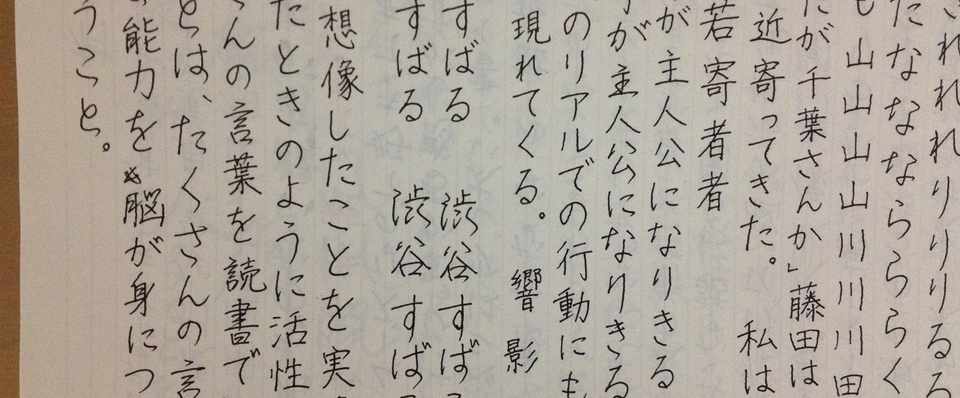 されれれりりりりるる
たなななならららく
も山山山山川川川田
だが千葉さんか」藤田は
近寄ってきた。 私は
若寄者者
が主人公になりきる
が主人公になりきる
のリアルでの行動にも
現れてくる。 響影
すばる 渋谷すば
すばる 渋谷すば
想像したことを実
たときのように活性
んの言葉を読書で
とは、たくさんの言
能力を脳が身につ
うこと。